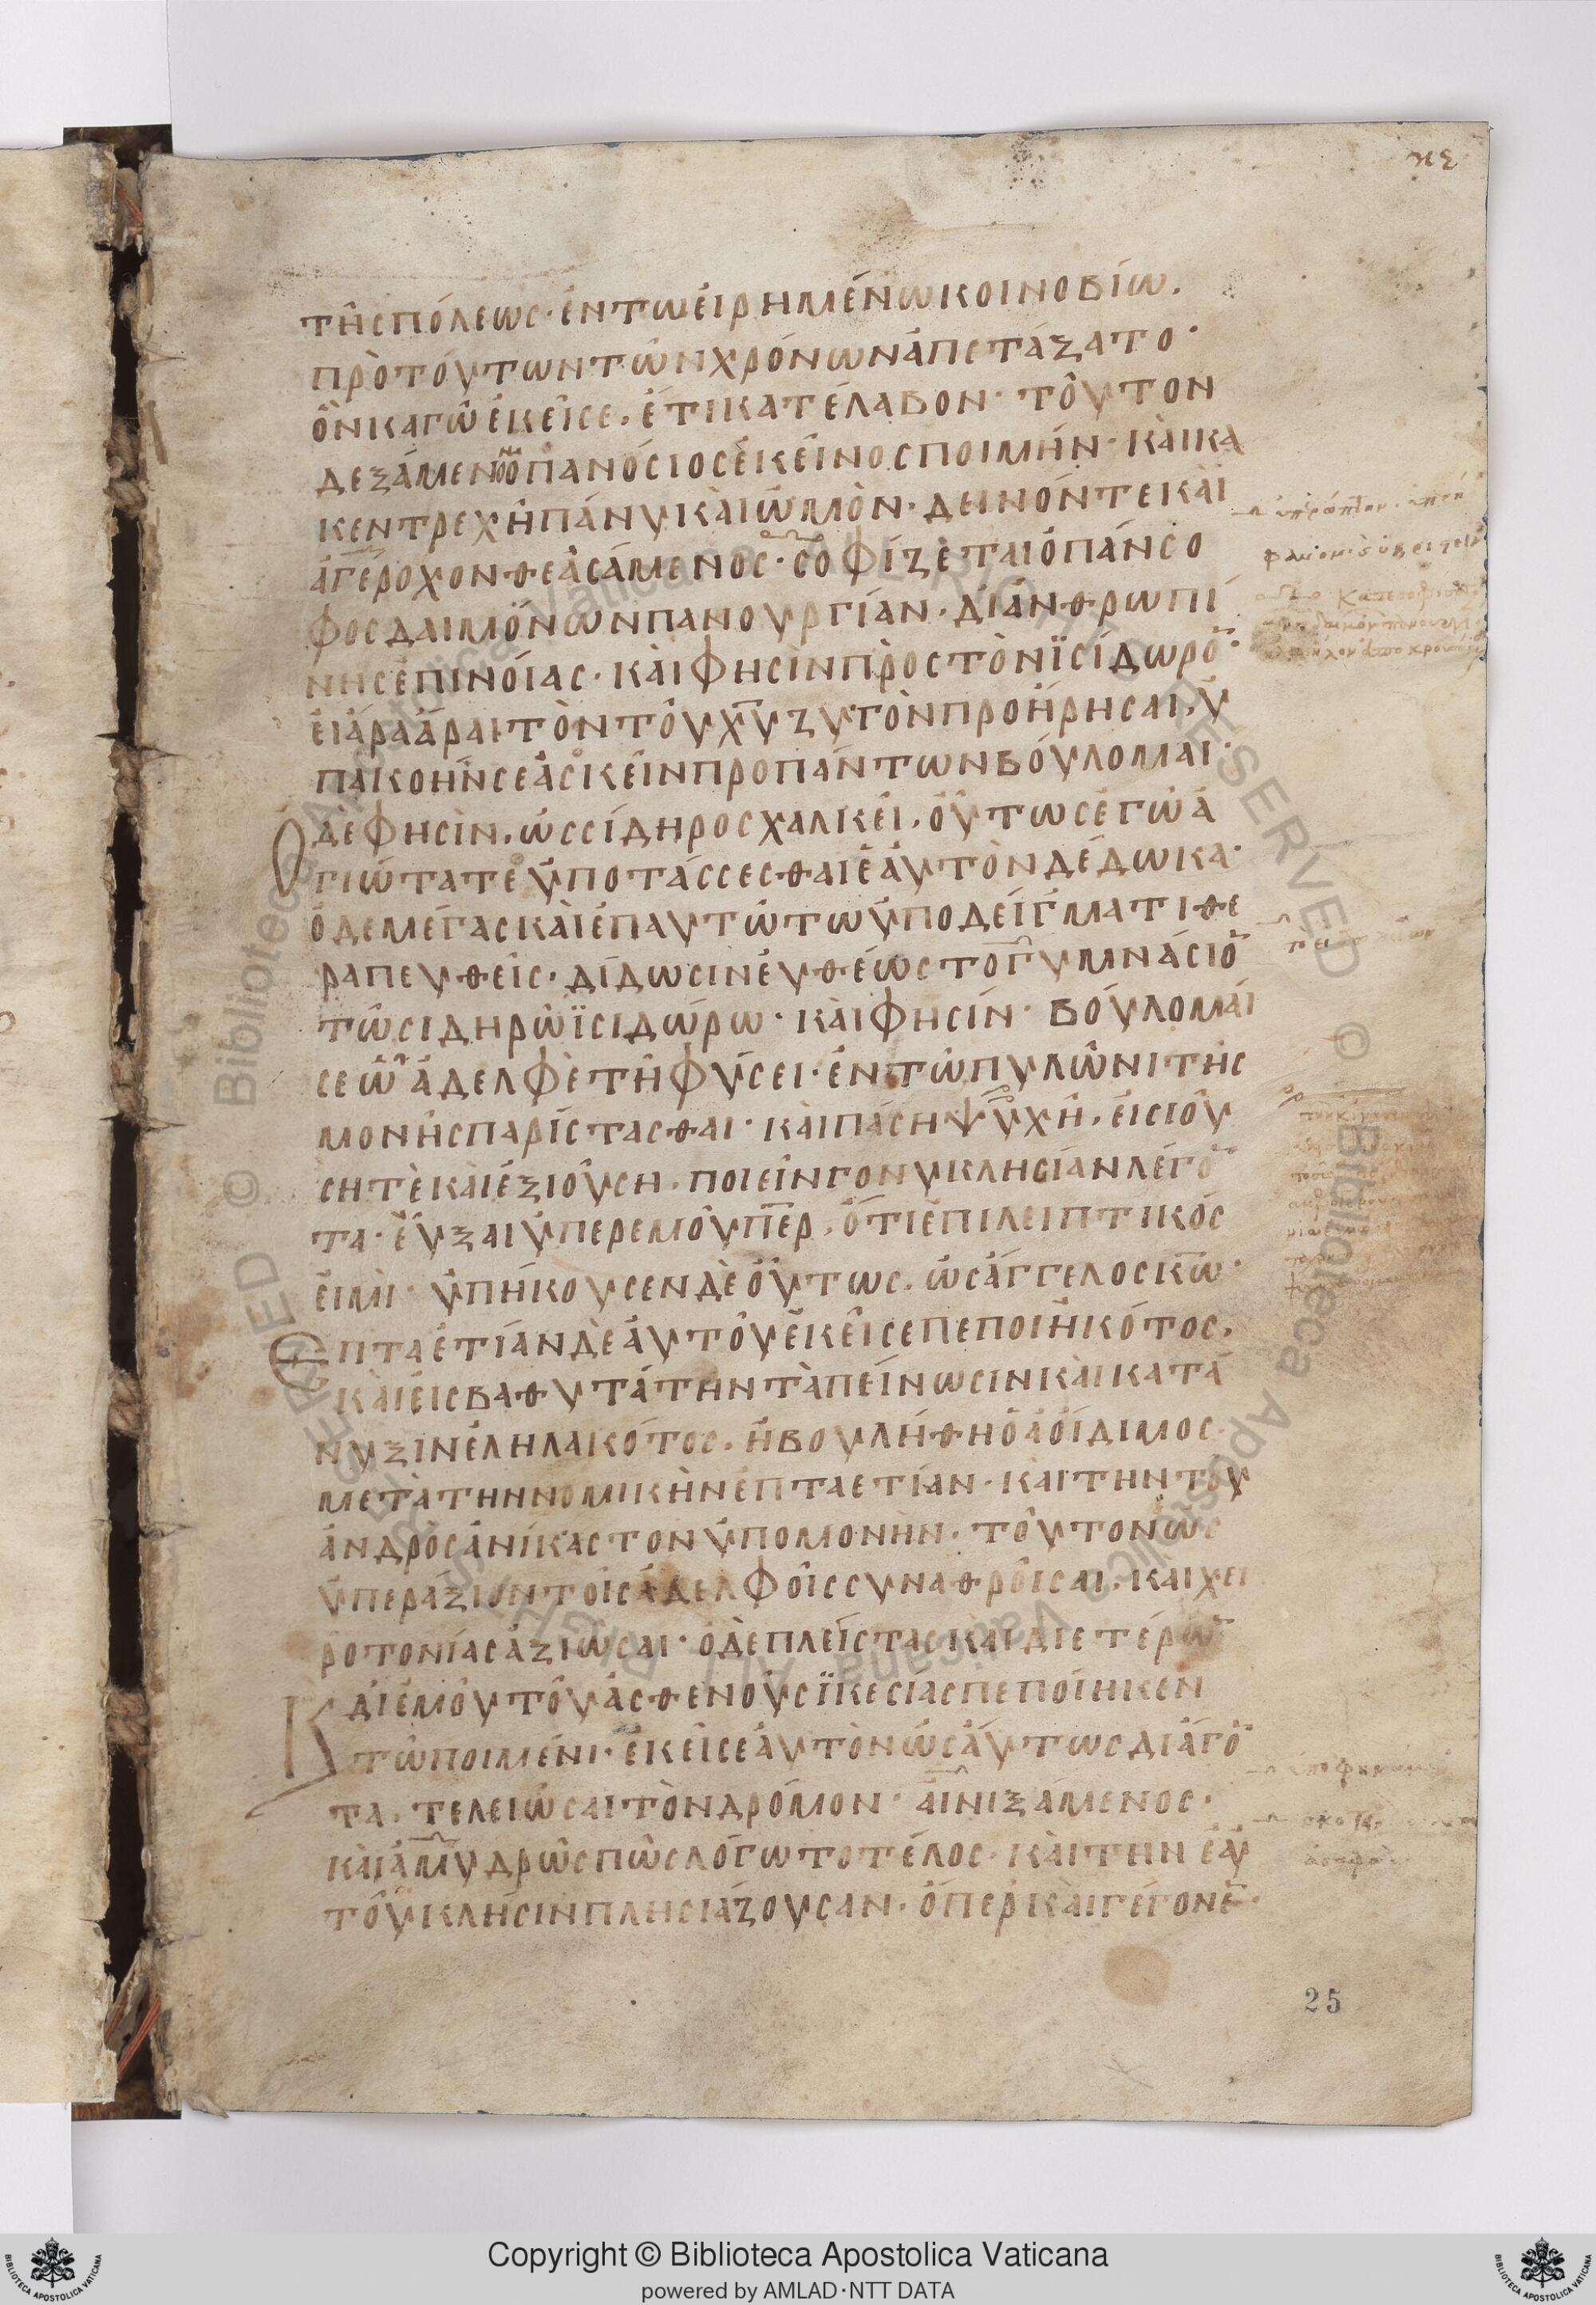 κε
τῆς πόλεως· ἐν τῶ εἰρημένω κοινοβίω.
πρὸ τούτων τῶν χρόνων ἀπετάξατο·
ὃν κἀγὼ ἐκεῖσε, ἔτι κατέλαβον· τοῦτον
δεξάμενος ὁ πανόσιος ἐκεῖνος ποιμήν· καὶ κα
κεντρεχῆ πάνυ καὶ ὠμὸν· δεινόν τε καὶ
ἀγέρωχον θεασάμενος· σοφίζεται ὁ πάνσο
φος δαιμόνων πανουργίαν· δι' ἀνθρωπί
νης ἐπινοίας· καὶ φησὶν πρὸς τὸν ϊσίδωρο̅·
εἰ ἄρα ἆραι τὸν τοῦ χυ̅ ζυγὸν προήρησαι, ὑ
πακοήν σε ἀσκεῖν πρὸ πάντων βούλομαι·
Ὁ δὲ φησὶν, ὡς σίδηρος χαλκεῖ, οὕτως ἐγὼ ἁ
γιώτατε ὑποτάσσεσθαι ἑαυτὸν δέδωκα·
ὁ δὲ μέγας καὶ ἐπ' αὐτῶ τῶ ὑποδείγματι θε
ραπευθεὶς· δίδωσιν εὐθέως τὸ γυμνάσιο̅
τῶ σιδηρῶ ϊσιδώρω· καὶ φησίν· βούλομαί
σε ὦ ἀδελφὲ τῆ φύσει· ἐν τῶ πυλῶνι τῆς
μονῆς παρίστασθαι· καὶ πάση ψυχῆ, εἰσιού
ση τὲ καὶ ἐξιούση, ποιεῖν γονυκλησίαν λέγο̅
τα· εὖξαι ὑπὲρ ἐμοῦ πε̅ρ, ὅτι ἐπιλειπτικός
εἰμι· ὑπήκουσεν δὲ οὕτως, ὡς ἄγγελος κω̅·
Ἑπταετίαν δὲ αὐτοῦ ἐκεῖσε πεποιηκότος,
καὶ εἰς βαθυτάτην ταπείνωσιν καὶ κατά
νυξιν ἐληλακότος, ἠβουλήθη ὁ ἀοίδιμος
μετὰ τὴν νομικὴν ἑπταετίαν· καὶ τὴν τοῦ
ἀνδρὸς ἀνίκαστον ὑπομονὴν· τοῦτον ὡς
ὑπεράξιον τοῖς ἀδελφοῖς συναθροῖσαι, καὶ χει
ροτονίας ἀξιῶσαι· ὁ δὲ πλείστας καὶ δι' ἑτέρω̅
Καὶ δι' ἐμοῦ τοῦ ἀσθενοῦς ϊκεσίας πεποίηκεν
τῶ ποιμένι· ἐκεῖσε αὐτὸν ὡσαύτως διάγο̅
τα, τελειῶσαι τὸν δρόμον· αἰνιξάμενος·
καὶ ἀμυδρῶς πὼς λόγω τὸ τέλος· καὶ τὴν ἑαυ
τοῦ κλῆσιν πλησιάζουσαν· ὅπερ καὶ γέγονε̅·
25
Copyright © Biblioteca Apostolica Vaticana
powered by AMLAD·NTT DATA